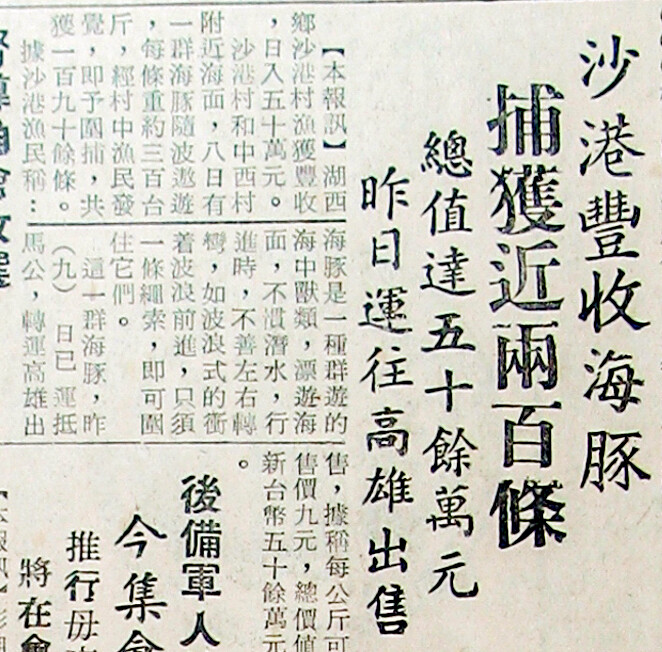 沙港豐收海豚
捕獲近兩百條
總值達五十餘萬元
昨日運往高雄出售
【本報訊】湖西
鄉沙港村漁獲豐收
，日入五十萬元。
沙港村和中西村
附近海面，八日有
一群海豚隨波遨遊
，每條重約三百台
斤，經村中漁民發
覺，即予圍捕，共
獲一百九十餘條。
據沙港漁民稱：
海豚是一種群遊的
海中獸類，漂遊海
面，不慣潛水，行
進時，不善左右轉
彎，如波浪式的衝
着波浪前進，只須
一條繩索，即可圍
住它們。
這一群海豚，昨
（九）日已運抵
馬公，轉運高雄出
售，據稱每公斤可
售價九元，總價值
新台幣五十餘萬元
。
後備軍人
今集會
推行毋
將在會
【本報訊】